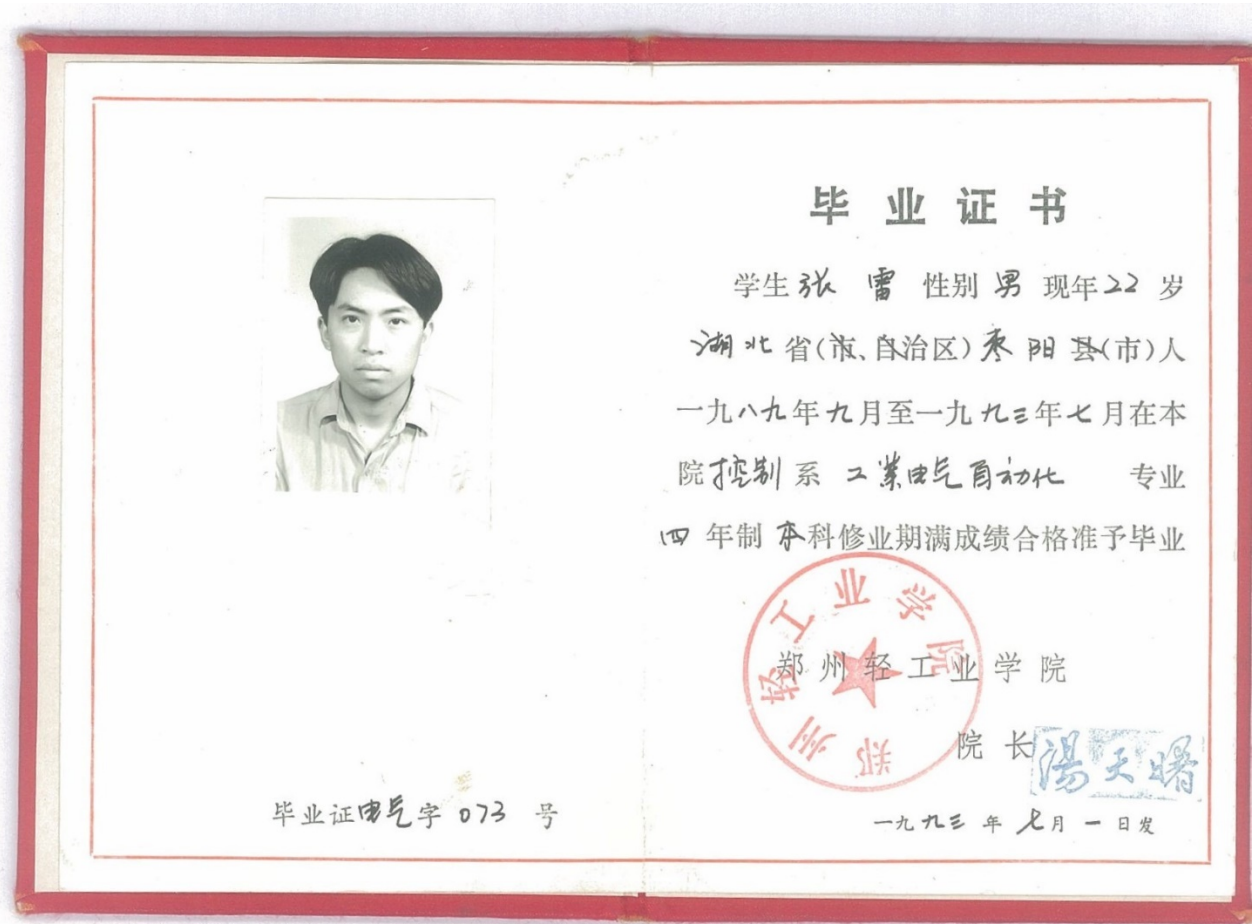 毕业证书
学生张雷性别男现年22岁
湖北省(市、自治区)枣阳县(市)人
一九八九年九月至一九九三年七月在本
院控制系工業电气自动化专业
四年制本科修业期满成绩合格准予毕业
郑州轻工业学院
郑州轻工业学院
院长湯天曙
一九九三年七月一日发
毕业证电气字073号